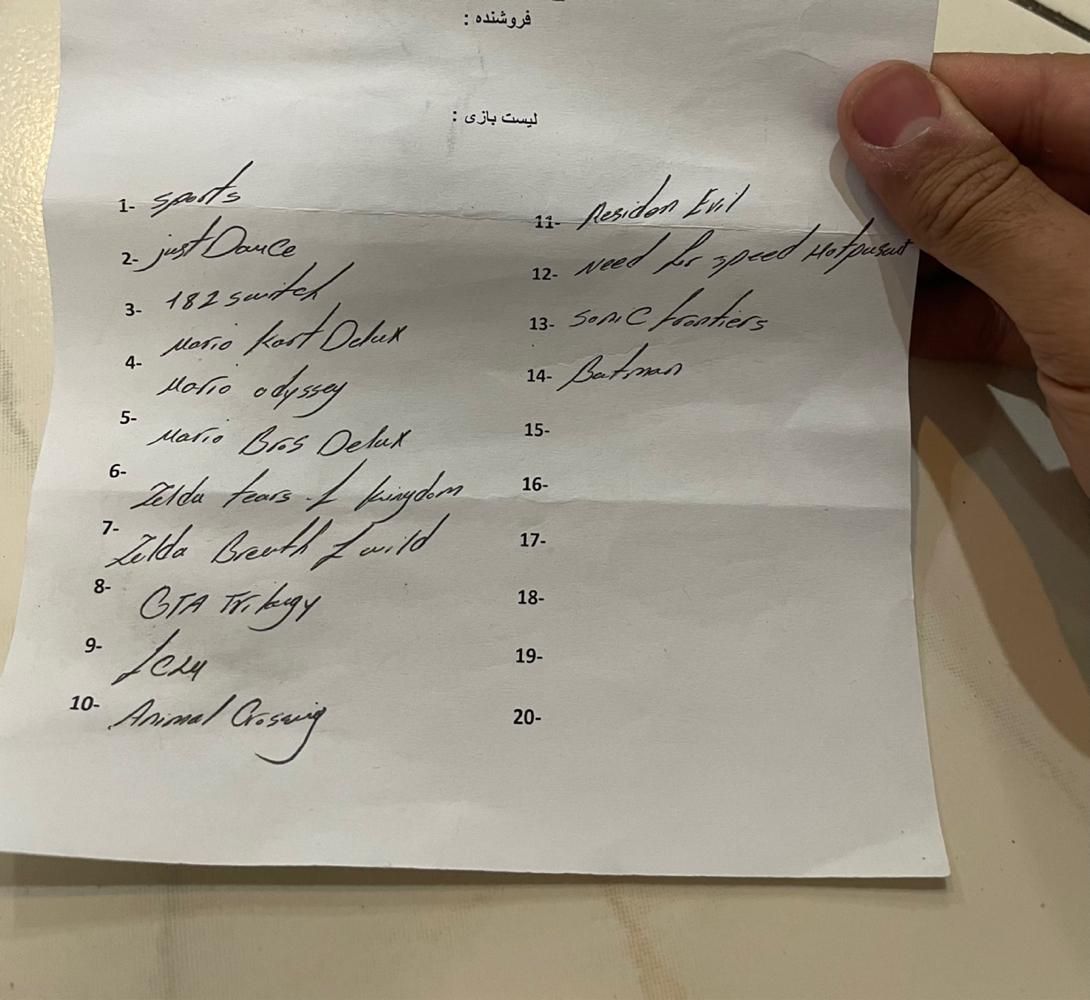 فروشنده :
لیست بازی :
1- sports
2- just Dance
3- 182 switch
Mario Kart Delux
4- Mario odyssey
5- Mario Bros Delux
6- Zelda tears of kingdom
7- Zelda Breath of wild
8- GTA Trilogy
9- fc24
10- Animal Crossing
11- Residen Evil
12- Need for speed Hotpursuit
13- Sonic frontiers
14- Batman
15-
16-
17-
18-
19-
20-